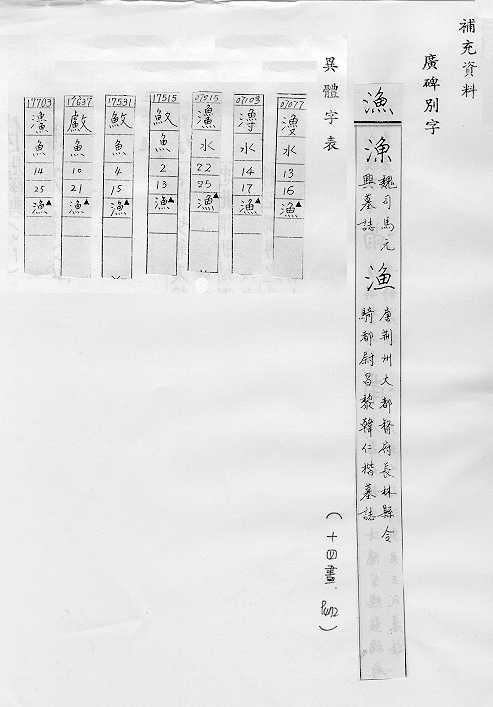 補充資料
廣碑別字
漁
漁 魏司馬元
興墓誌
漁 唐荆州大都督府長林縣令
騎都尉昌黎韓仁楷墓誌
(十四畫.
異體字表
07077 水 13 16 漁▲
07103 水 14 17 漁▲
水 22 25 漁▲
17515 䰻 魚 2 13 漁▲
17531 魰 魚 4 15 漁▲
魚 10 21 漁▲
17703 魚 14 25 漁▲